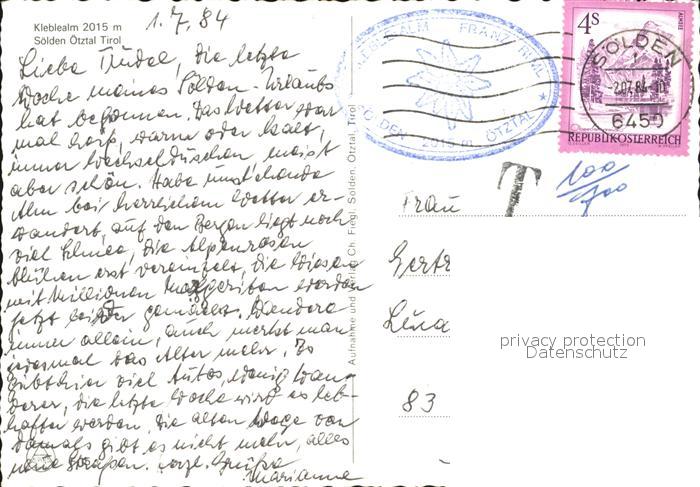 Kleblealm 2015 m
Sölden Ötztal Tirol
1.7.84
Liebe Trudel, die letzte
Woche meines Sölden-Urlaubs
hat begonnen. Das Wetter war
mal heiß, warm oder kalt,
immer Wechselduschen, meist
aber schön. Habe
Alm bei herrlichem Wetter er-
wandert, auf den Bergen liegt noch
viel Schnee, die Alpenrosen
blühen erst vereinzelt, die Wiesen
mit Millionen Margeriten werden
jetzt leider gemäht. Wandere
immer allein, auch merkt man
diesmal das Alter mehr. Es
gibt hier viel Autos, wenig Wan-
derer, die letzte Woche wird es leb-
hafter werden. Die alten Wege von
damals gibt es nicht mehr, alles
neue Straßen. Herzl. Grüße
Marianne
Aufnahme und Verlag Ch. Fiegl, Sölden, Ötztal, Tirol
KLEBLEALM FRANZ TIROL
SÖLDEN 2015 m ÖTZTAL
4S
SÖLDEN
-2.07.84-10
6450
REPUBLIK ÖSTERREICH
T
100
700
Frau
Gertr
Lina
83
privacy protection
Datenschutz